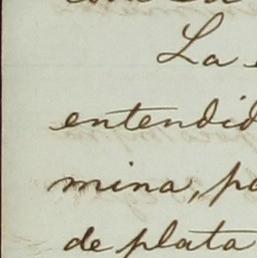 La
entendid
mina, po
de plata